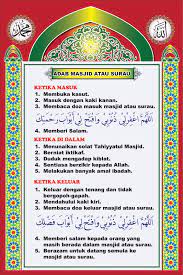 ADAB MASJID ATAU SURAU
KETIKA MASUK
1. Membuka kasut.
2. Masuk dengan kaki kanan.
3. Membaca doa masuk masjid atau surau.
اللهم اغفرلي ذنوبي وافتح لي أبواب رحمتك
4. Memberi Salam.
KETIKA DI DALAM
1. Menunaikan solat Tahiyyatul Masjid.
2. Berniat iktikaf.
3. Duduk mengadap kiblat.
4. Sentiasa berzikir kepada Allah.
5. Melakukan banyak amal ibadah.
KETIKA KELUAR
1. Keluar dengan tenang dan tidak
bergopoh-gapah.
2. Mendahulukan kaki kiri.
3. Membaca doa keluar masjid atau surau.
اللهم اغفرلي ذنوبي وافتح لي أبواب فضلك
4. Memberi salam kepada orang yang
masih berada dalam masjid atau surau.
5. Berazam untuk datang semula ke
masjid atau surau.